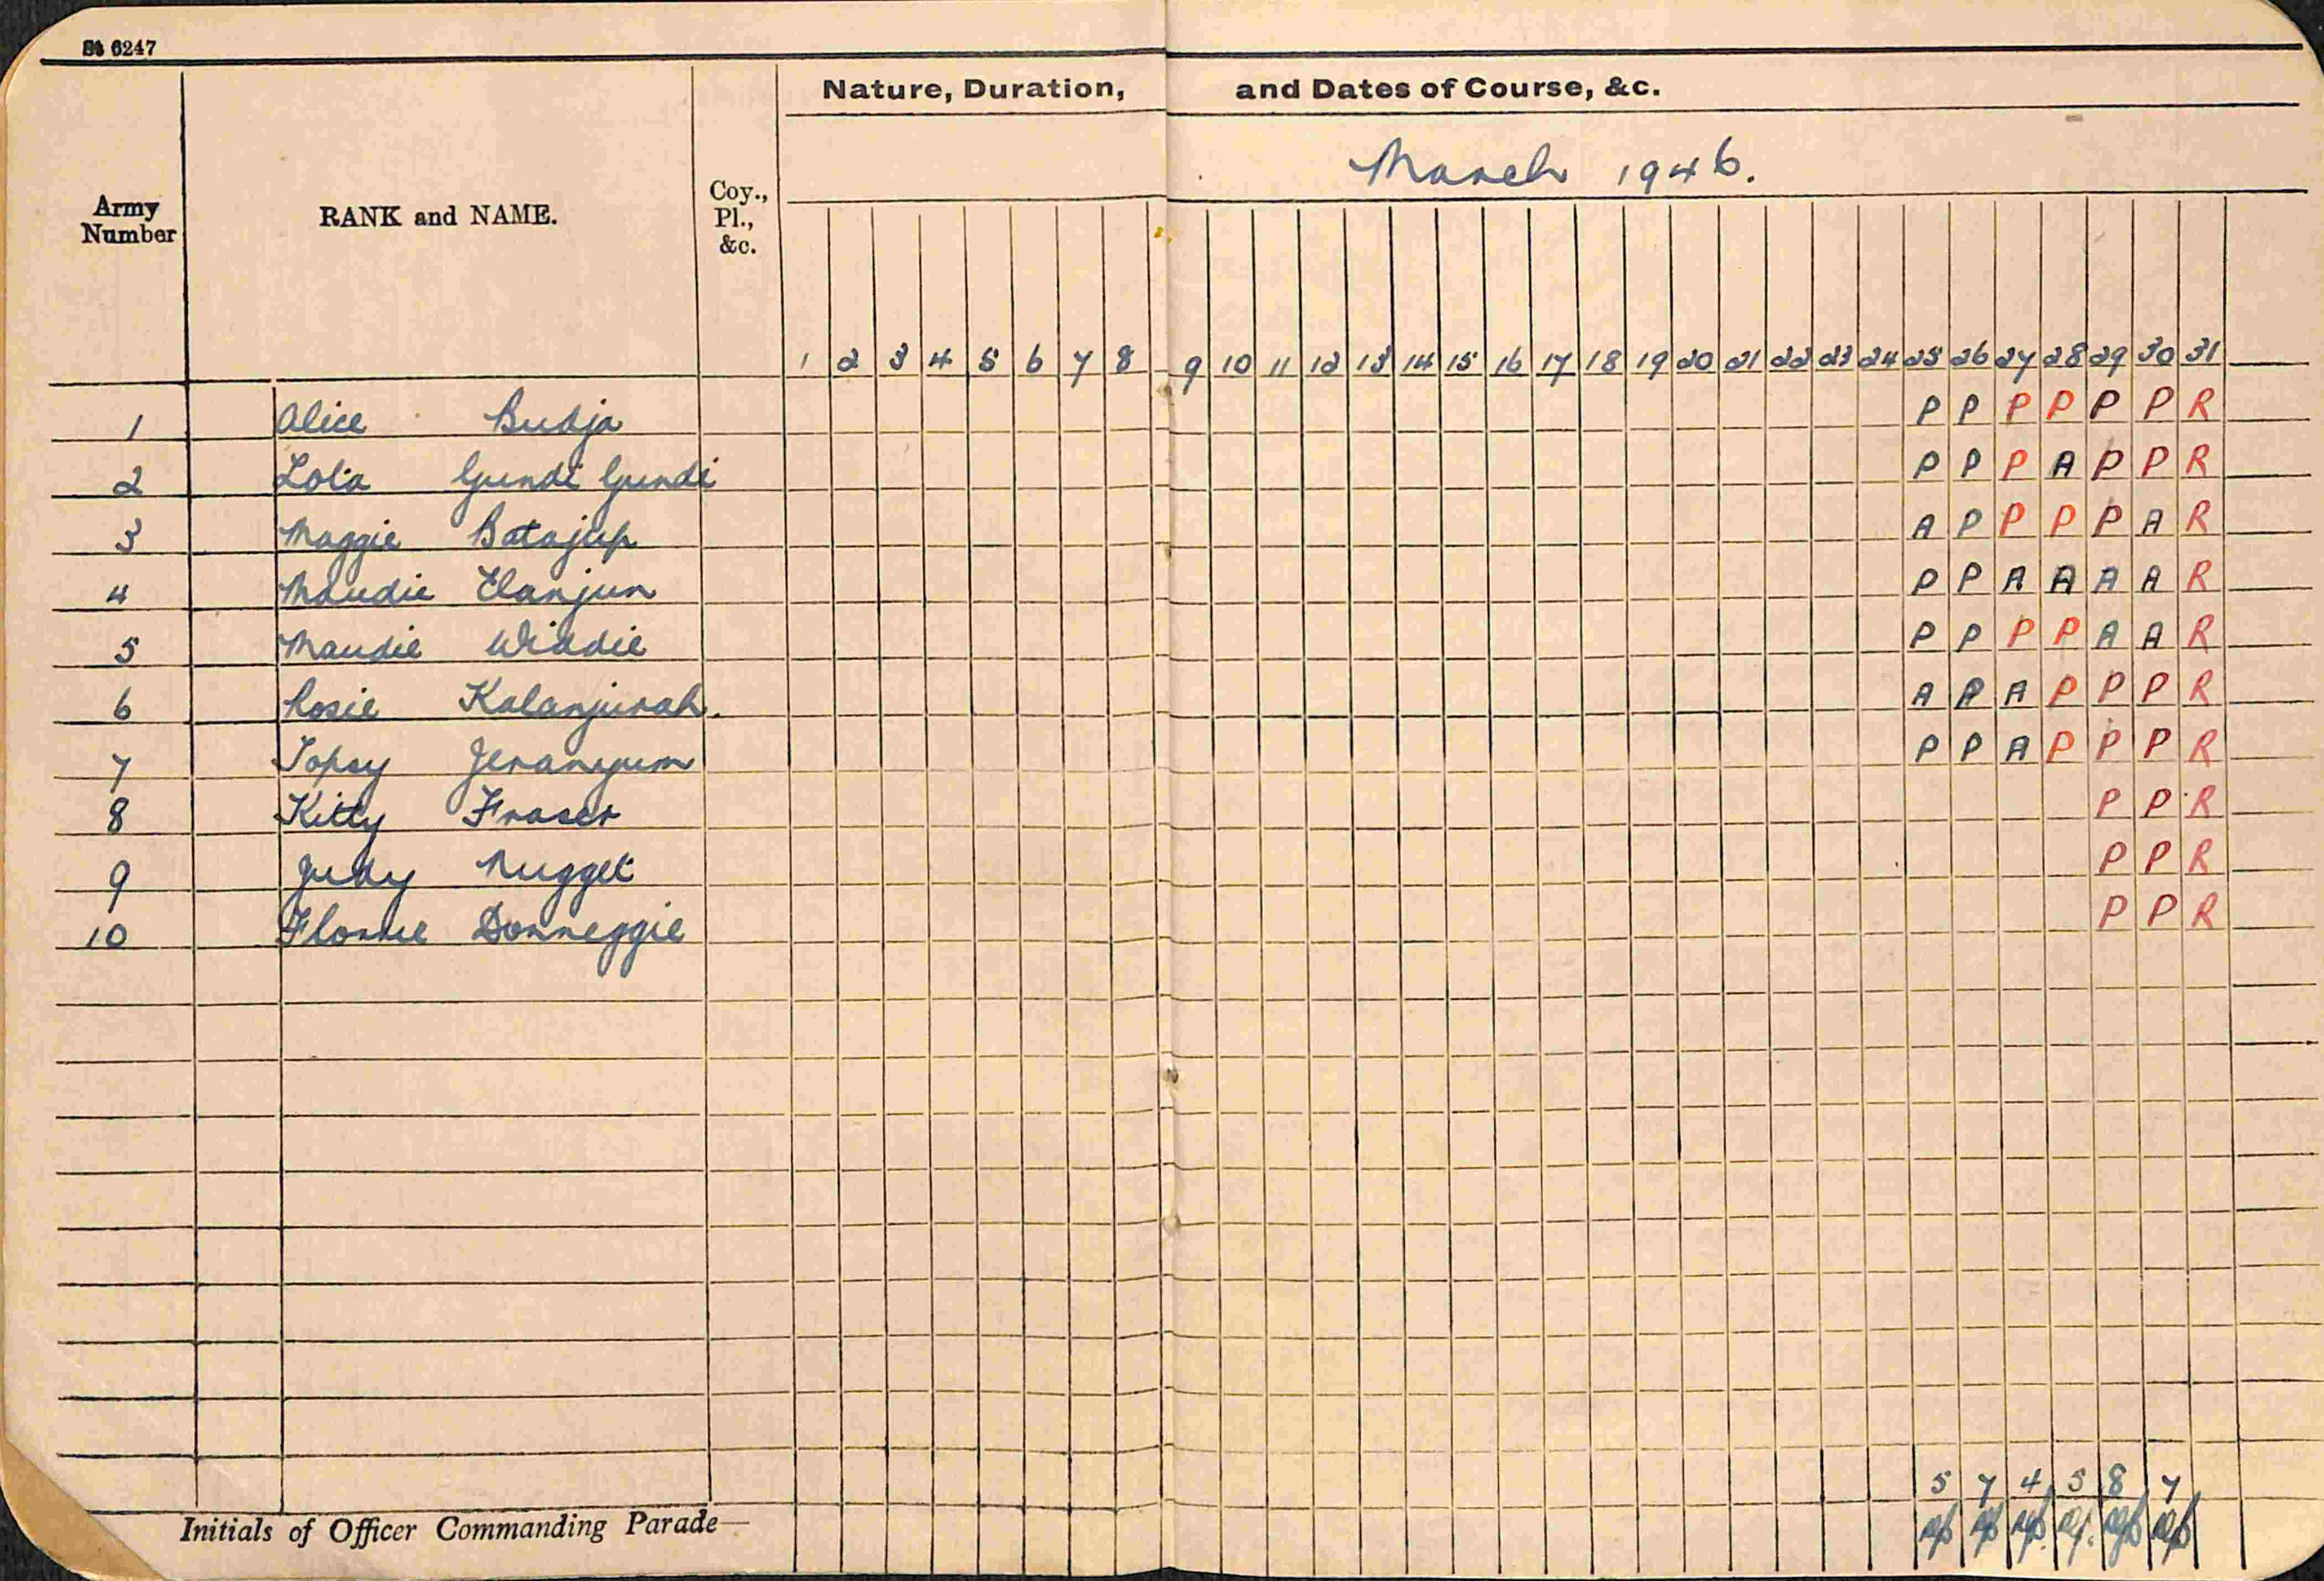 6247
Nature, Duration, and Dates of Course, &c.
March 1946.
Army Number
RANK and NAME.
Coy., Pl., &c.
1 2 3 4 5 6 7 8 9 10 11 12 13 14 15 16 17 18 19 20 21 22 23 24 25 26 27 28 29 30 31
1 Alice Budja P P P P P P R
2 Lola Gundi Gundi P P P A P P R
3 Maggie Batajup A P P P P A R
4 Maudie Elanjun P P A A A A R
5 Maudie Widdie P P P P A A R
6 Rosie Kalanjurah. A P A P P P R
7 Topsy P P A P P P R
8 Kitty Fraser P P R
9 Judy Nugget P P R
10 Florrie Donneggie P P R
5 7 4 5 8 7
Initials of Officer Commanding Parade—